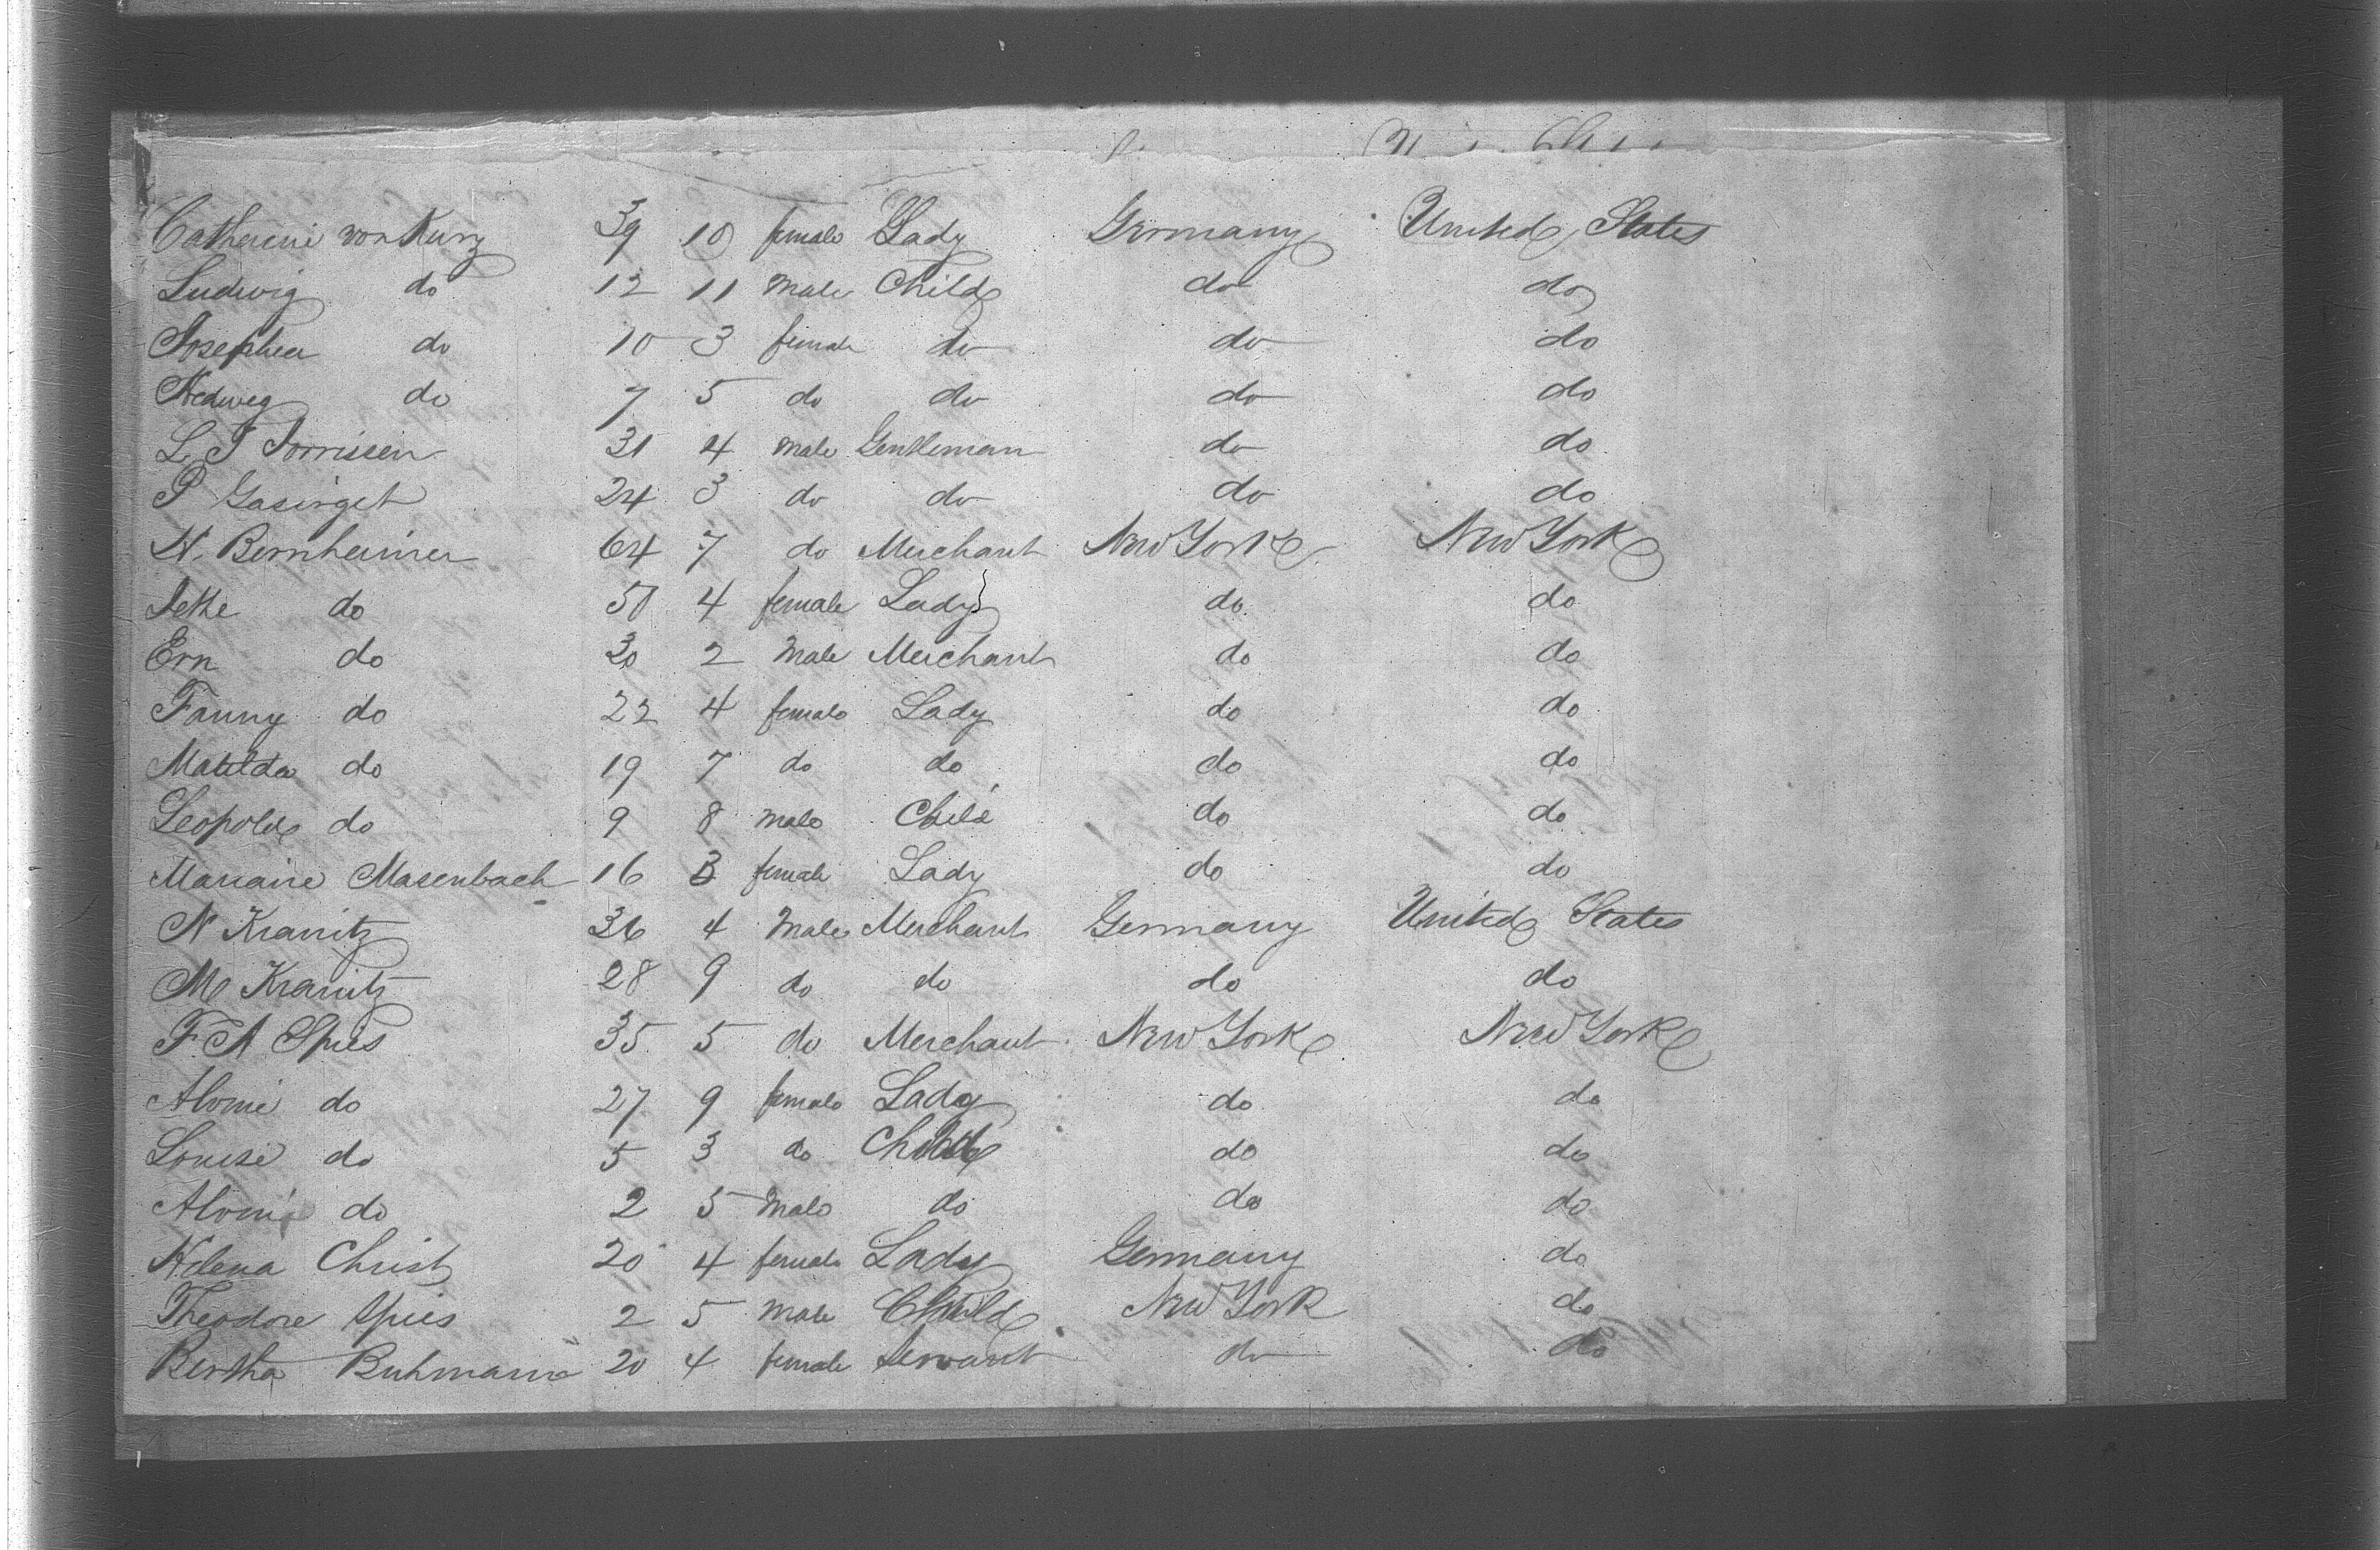 Catherine von Kurz 39 10 female Lady Germany United States
Ludwig do 12 11 male Child do do
Josepha do 10 3 female do do do
Hedwig do 7 5 do do do do
L J Jorrissen 31 4 male Gentleman do do
P 24 3 do do do do
H. Bernheimer 64 7 do Merchant New York New York
Jette do 50 4 female Lady do do
Ern do 30 2 male Merchant do do
Fanny do 22 4 female Lady do do
Matilda do 19 7 do do do do
Leopold do 9 8 male Child do do
Mariane Masenbach 16 3 female Lady do do
N Kranitz 36 4 male Merchant Germany United States
M Kranitz 28 9 do do do do
F. A Spies 35 5 do Merchant New York New York
Alvine do 27 9 female Lady do do
Louise do 5 3 do Child do do
do 2 5 male do do do
Helena Christ 20 4 female Lady Germany do
Theodore Spies 2 5 male Child New York do
Bertha Buhmann 20 4 female Servant do do